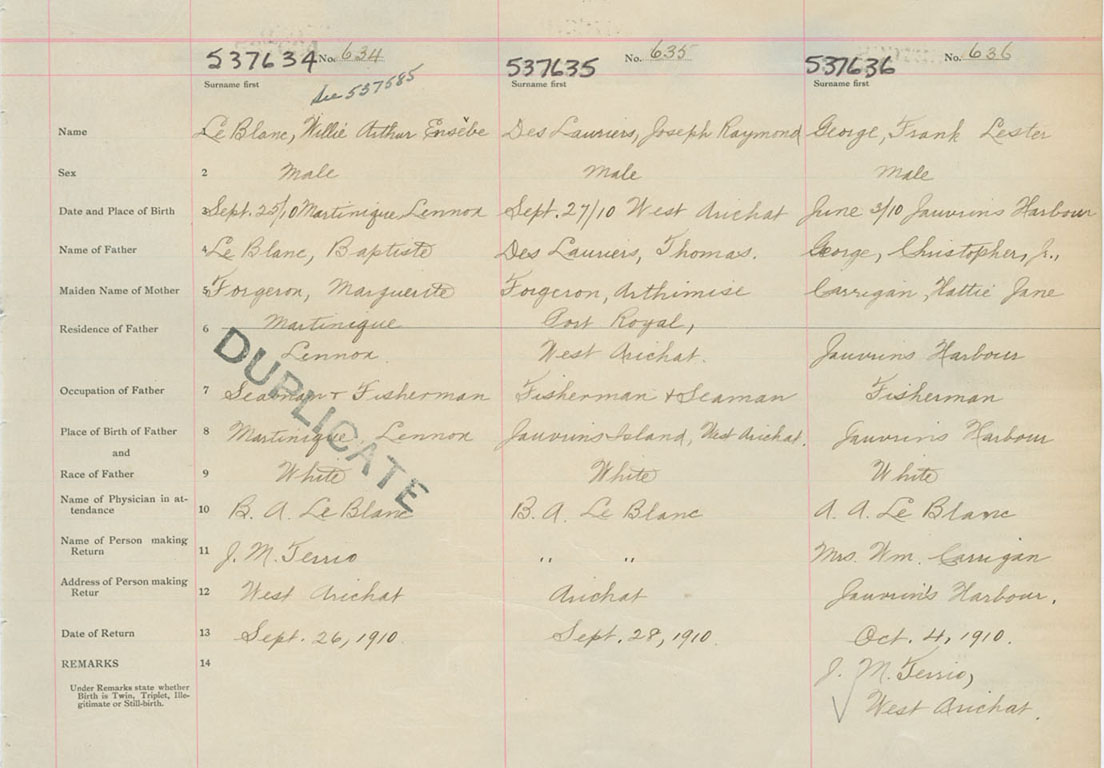 537634 No. 634 537635 No. 635 537636 No. 636
Surname first See 537585 Surname first Surname first
Name 1 Le Blanc, Willie Arthur Ensèbe Des Lauriers, Joseph Raymond George, Frank Lester
Sex 2 Male Male Male
Date and Place of Birth 3 Sept. 25/10 Martinique Lennox Sept. 27/10 West Arichat June 3/10 Jauvrins Harbour
Name of Father 4 Le Blanc, Baptiste Des Lauriers, Thomas. George, Christopher, Jr.,
Maiden Name of Mother 5 Forgeron, Marguerite Forgeron, Arthimise Carrigan, Hattie Jane
Residence of Father 6 Martinique Port Royal,
Lennox. West Arichat. Jauvrins Harbour
DUPLICATE
Occupation of Father 7 Seaman + Fisherman Fisherman + Seaman Fisherman
Place of Birth of Father 8 Martinique Lennox Jauvrins Island, West Arichat. Jauvrins Harbour
and
Race of Father 9 White White White
Name of Physician in at-
tendance 10 B. A. Le Blanc B. A. Le Blanc A. A. Le Blanc
Name of Person making
Return 11 J. M. Terrio " " Mrs. Wm. Carrigan
Address of Person making
Retur 12 West Arichat Arichat Jauvrin's Harbour.
Date of Return 13 Sept. 26, 1910. Sept. 28, 1910. Oct. 4, 1910.
REMARKS 14 J. M. Terrio,
Under Remarks state whether
Birth is Twin, Triplet, Ille-
gitimate or Still-birth.
West Arichat.